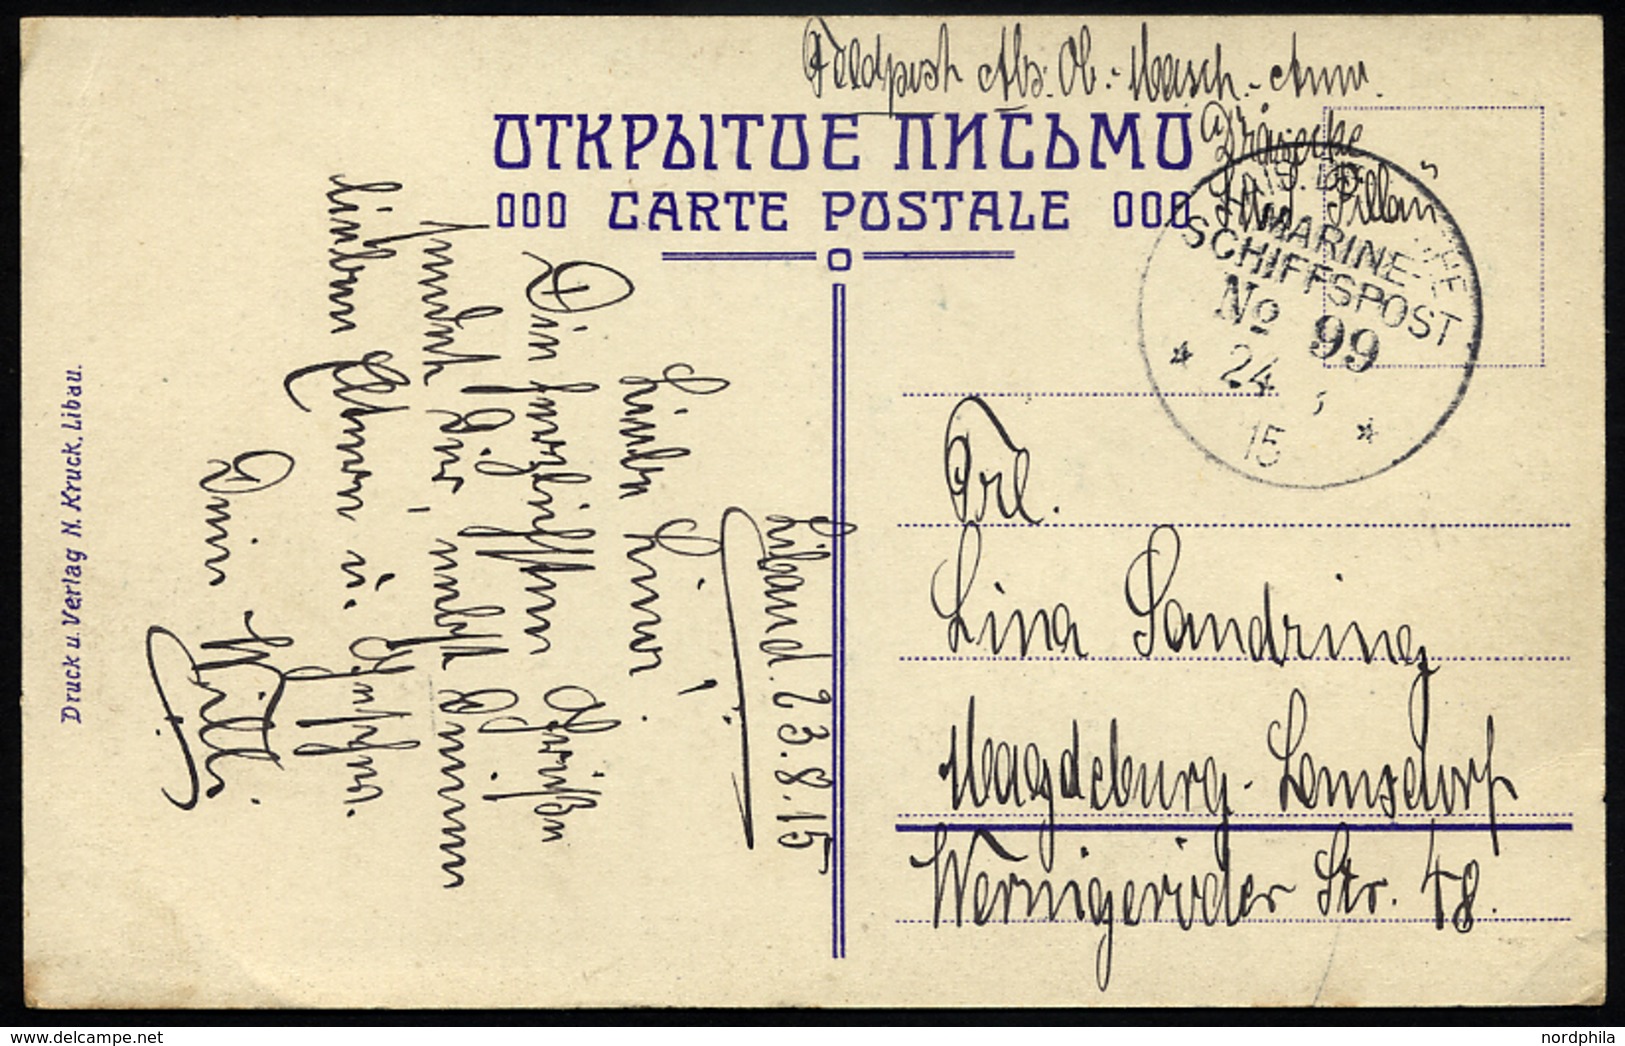 Feldpost Abs. Ob.-Masch.-Anw.
Dräsecke
S.M.S. Pillau
ОТКРЫТОЕ ПИСЬМО
000 CARTE POSTALE 000
KAIS. DEUTSCHE
MARINE-
SCHIFFSPOST
No 99
* 24 *
15
Libau d. 23.8.15
Liebe Lina!
Die herzlichsten Grüße
sendet Dir, nebst Deinen
lieben Eltern u.
Dein Willi
Frl.
Lina Sandring
Magdeburg-Lemsdorf
Wernigeröder Str. 48.
Druck u. Verlag N. Kruck, Libau.
nordphila